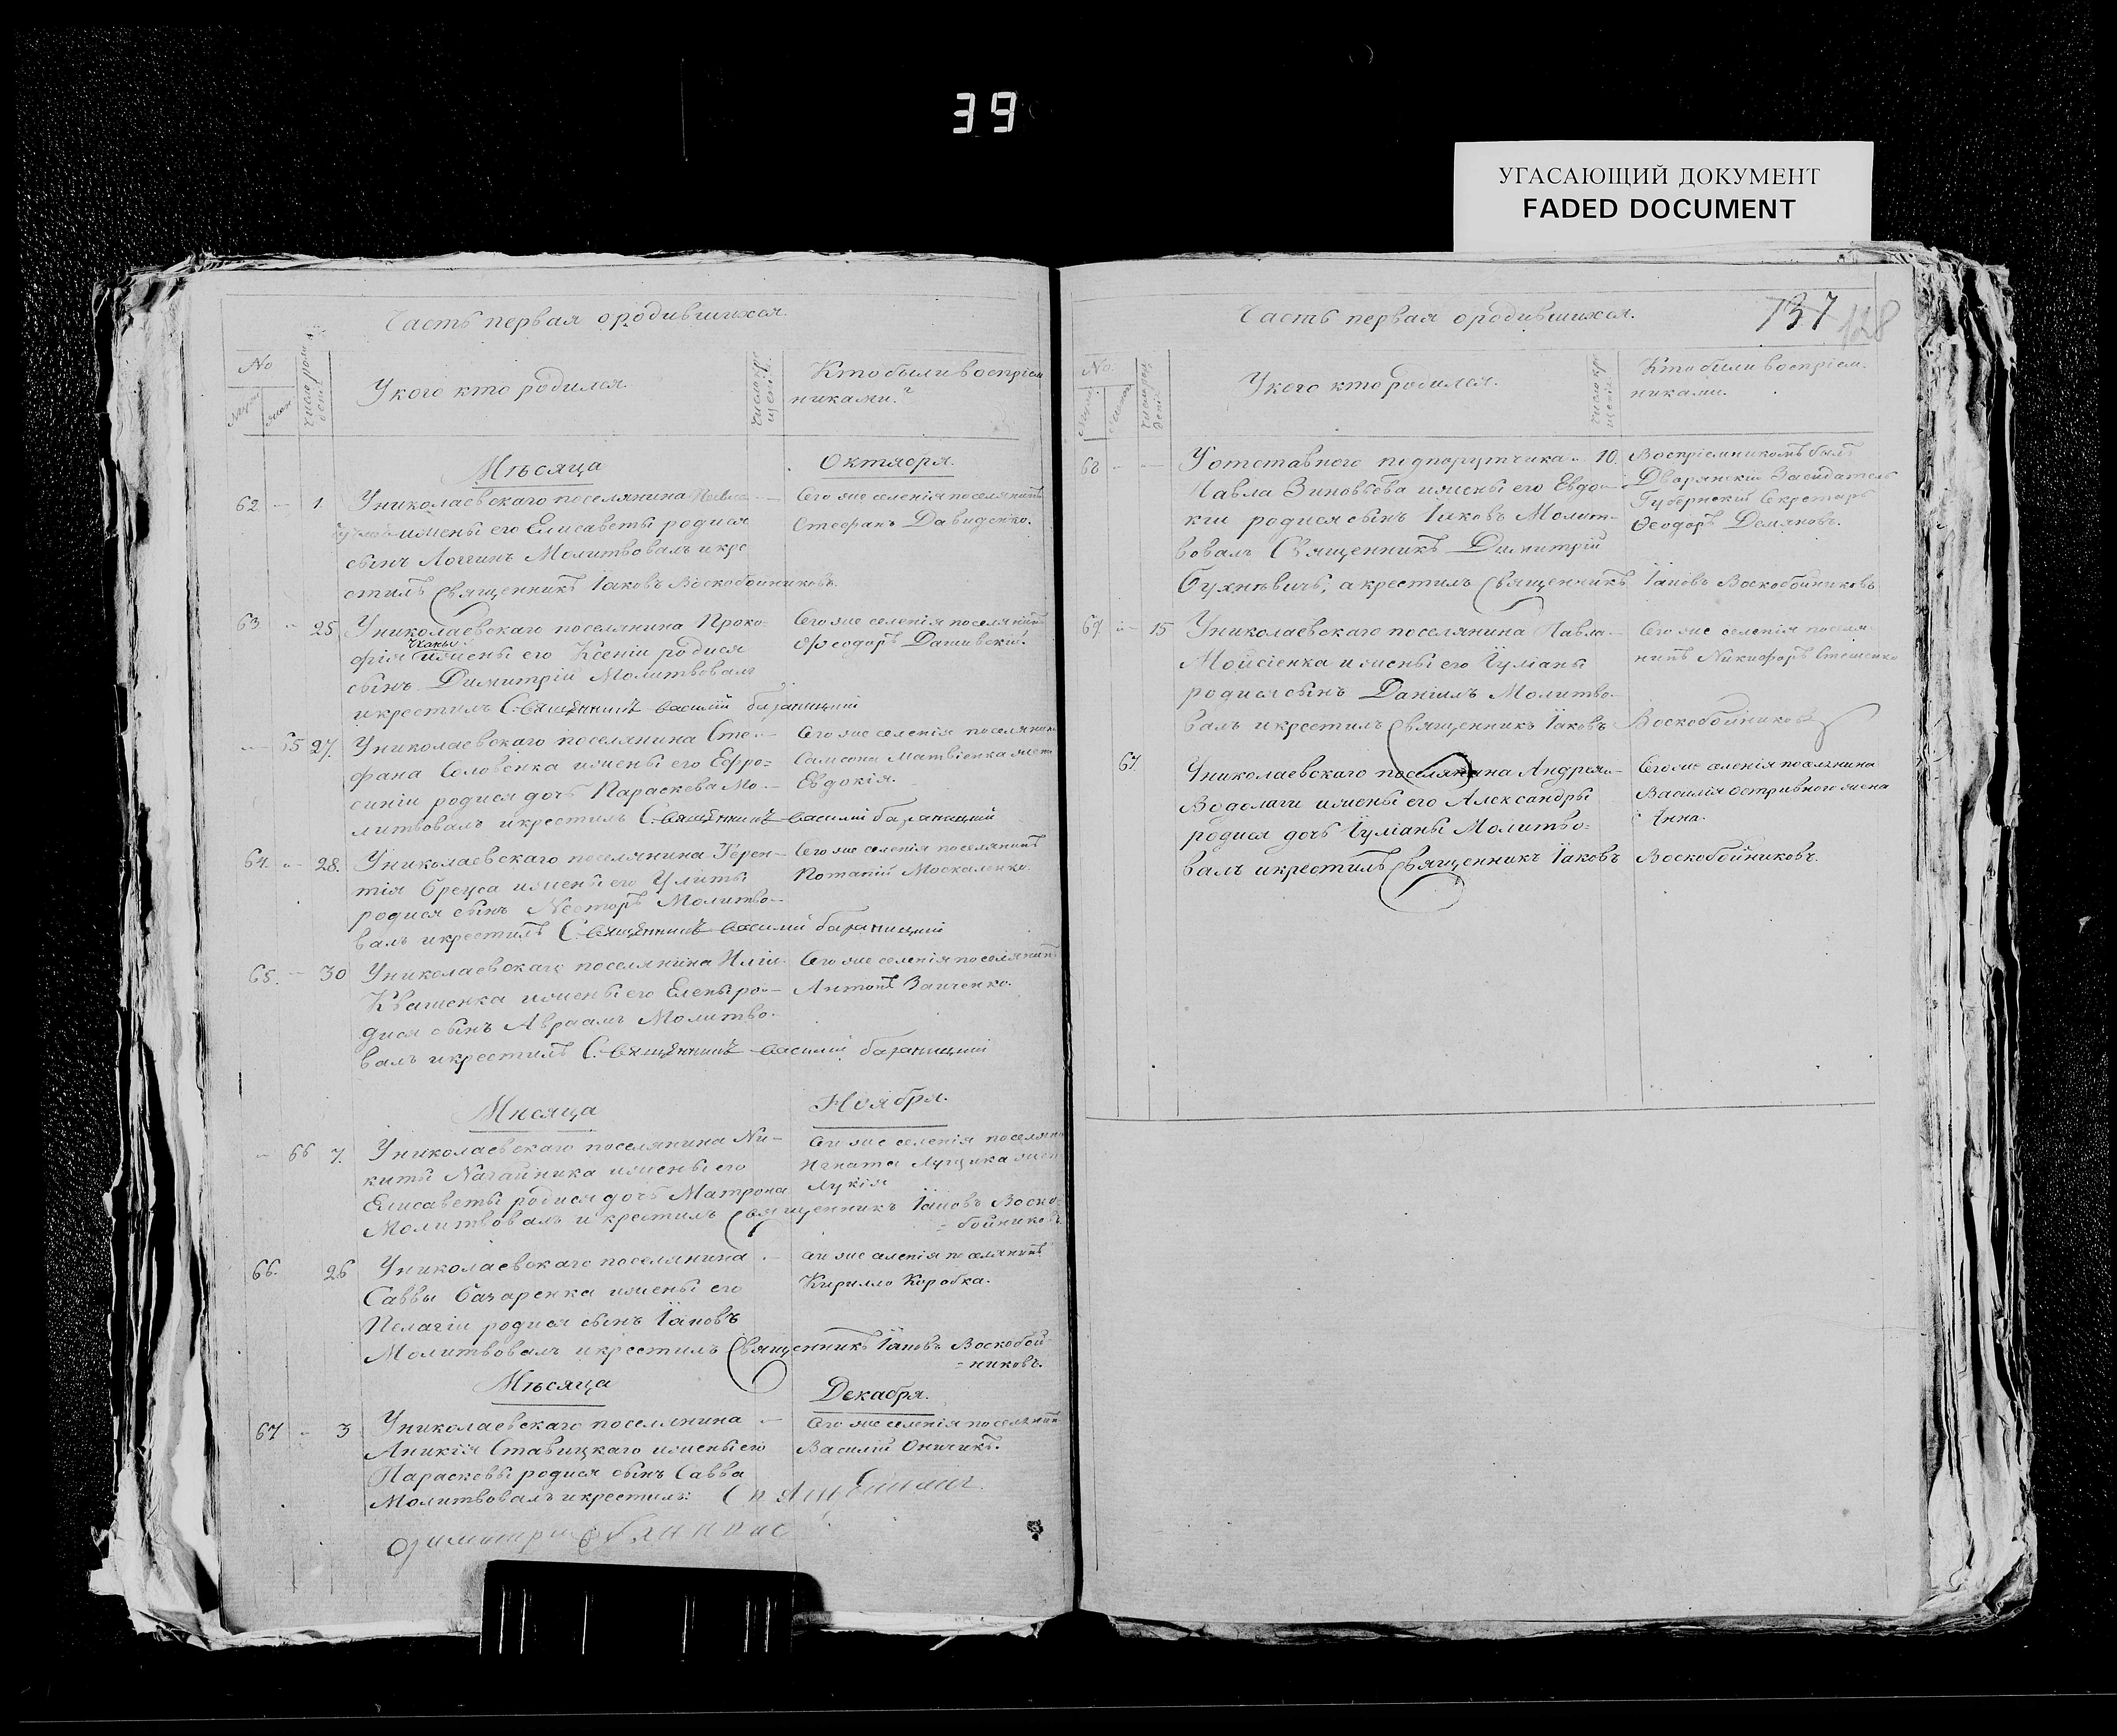 39
УГАСАЮЩИЙ ДОКУМЕНТ
FADED DOCUMENT
Часть первая ородившихся.
No
Укого кто родился.
Кто были воспріем
никами.
Мѣсяца
Октября.
62 1. Униколаевскаго поселянина
ижены его Елисаветы родися
сынъ Логгинъ Молитвовалъ икре
стилъ Священникъ Іаковъ Воскобойниковъ.
Сего же селенія поселянинъ
Стефанъ Давиденко.
63. 25 Униколаевскаго поселянина Проко-
фія ижены его Ксеніи родися
сынъ Димитрій Молитвовалъ
икрестилъ Священникъ василій
Сего же селенія поселянинъ
Ѳеодоръ Дашивскій.
65 27. Униколаевскаго поселянина Сте-
фана Соловенка ижены его Ефро=
синіи родися дочь Параскева Мо-
литвовалъ икрестилъ Священникъ василій
Сего же селенія поселянина
Самсона Матвіенка жена
Евдокія.
64. 28. Униколаевскаго поселянина Терен-
тія Бреуса ижены его Улиты
родися сынъ Несторъ Молитво-
валъ икрестилъ Священникъ василій
Сего же селенія поселянинъ
Потапій Москаленко.
65. 30 Униколаевскаго поселянина Иліи
Квашенка ижены его Елены ро-
дися сынъ Авраамъ Молитво-
валъ икрестилъ Священникъ василій
Сего же селенія поселянинъ
Антонъ Заиченко.
Мѣсяца
Ноября.
66 7. Униколаевскаго поселянина Ни-
киты Нагайника ижены его
Елисаветы родися дочь Матрона
Молитвовалъ и крестилъ Священникъ Іаковъ Воско-
=бойниковъ.
Сего же селенія поселянина
Игната жена
Лукія
66. 26 Униколаевскаго поселянина
Саввы Базаренка ижены его
Пелагіи родися сынъ Іаковъ
Молитвовалъ икрестилъ Священникъ Іаковъ Воскобой
=никовъ.
сего же селенія поселянинъ
Кирилло Коробка.
Мѣсяца
Декабря.
67 3 Униколаевскаго поселянина
Аникія Ставицкаго ижены его
Параскевы родися сынъ Савва
Молитвовалъ икрестилъ: Священникъ
Сего же селенія поселянинъ
Василій
Часть первая ородившихся.
737 128
No.
Укого кто родился.
Кто были воспріем.
никами.
68 Уотставного подпорутчика 10.
Павла Зиновьева ижены его Евдо-
кіи родися сынъ Іаковъ Молит-
вовалъ Священникъ Димитрій
Бухнѣвичъ, а крестилъ Священникъ Іаковъ Воскобойниковъ
Воспріемникомъ былъ
Дворянскій Засидатель
Губернскій Секретарь
Ѳеодоръ Демяновъ.
69. 15 Униколаевскаго поселянина Павла
Мойсіенка ижены его Іуліаны
родися сынъ Даніилъ Молитво-
валъ икрестилъ Священникъ Іаковъ Воскобойниковъ
Сего же селенія поселя-
нинъ Никифоръ Стешенко
67. Униколаевскаго поселянина Андрея
Водолаги ижены его Александры
родися дочь Іуліаны Молитво=
валъ икрестилъ Священникъ Іаковъ Воскобойниковъ.
Сего же селенія поселянина
Василія Остривного жена
Анна.